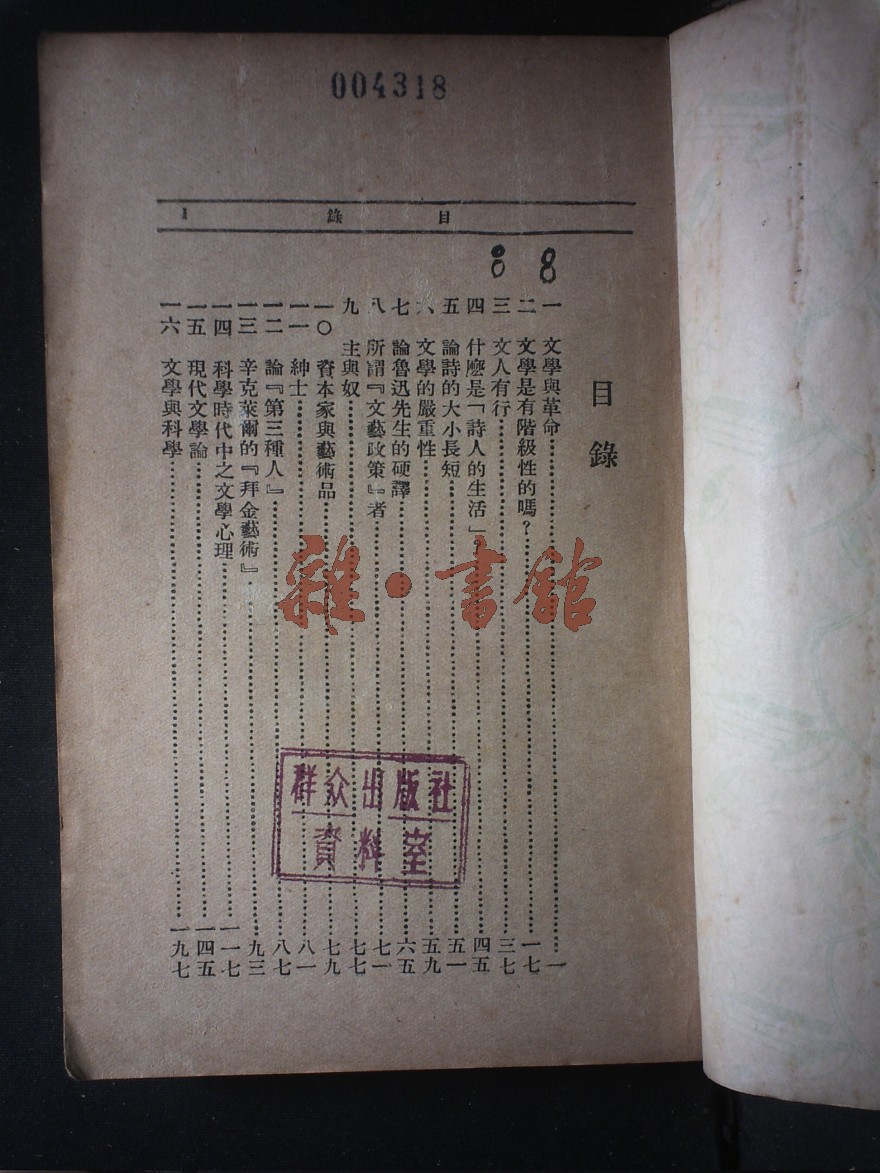 004318
目錄 1
8 8
目錄
一 文學與革命 一
二 文學是有階級性的嗎？ 一七
三 文人有行 三七
四 什麼是「詩人的生活」 四五
五 論詩的大小長短 五一
六 文學的嚴重性 五九
七 論魯迅先生的硬譯 六五
八 所謂『文藝政策』者 七一
九 主與奴 七七
一〇 資本家與藝術品 七九
一一 紳士 八一
一二 論『第三種人』 八七
一三 辛克萊爾的『拜金藝術』 九三
一四 科學時代中之文學心理 一一七
一五 現代文學論 一四五
一六 文學與科學 一九七
雜·書館
群众出版社
資料室